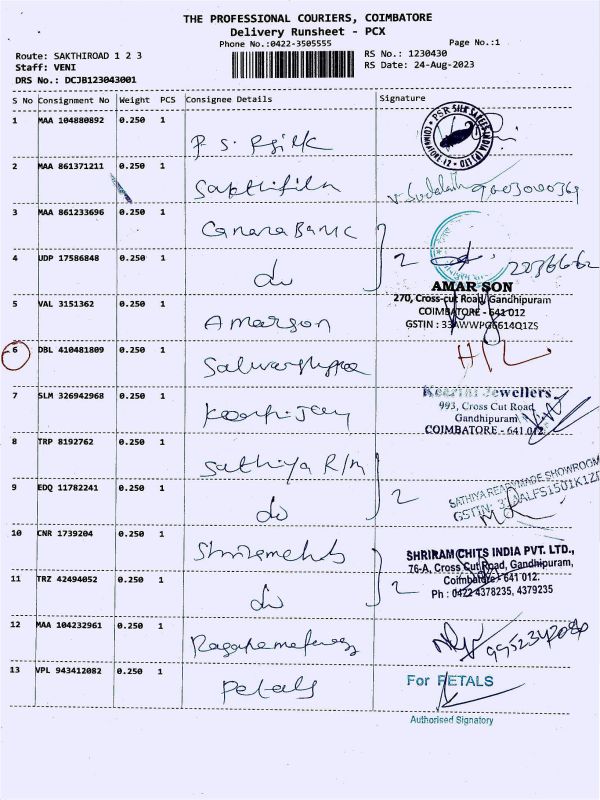 THE PROFESSIONAL COURIERS, COIMBATORE
Delivery Runsheet - PCX
Phone No.:0422-3505555
Page No.:1
Route: SAKTHIROAD 1 2 3
RS No.: 1230430
Staff: VENI
RS Date: 24-Aug-2023
DRS No.: DCJB123043001
S No Consignment No Weight PCS Consignee Details Signature
1 MAA 104880892 0.250 1
PSR SILK SAREES INDIA (P) LTD
COIMBATORE-12
2 MAA 861371211 0.250 1 Sakthifiln
9003000369
3 MAA 861233696 0.250 1 Canara Bank
2
4 UDP 17586848 0.250 1 do
AMAR SON
270, Cross-cut Road, Gandhipuram
COIMBATORE - 641 012
GSTIN : 33AWWPG6614Q1ZS
5 VAL 3151362 0.250 1 Amarson
6 DBL 410481809 0.250 1
7 SLM 326942968 0.250 1
Keerthi Jewellers
993, Cross Cut Road
Gandhipuram
COIMBATORE - 641 012
8 TRP 8192762 0.250 1 Sathiya R/m
2
SATHIYA READYMADE SHOWROOM
9 EDQ 11782241 0.250 1 do
10 CNR 1739204 0.250 1
2
SHRIRAM CHITS INDIA PVT. LTD.,
76-A, Cross Cut Road, Gandhipuram,
Coimbatore - 641 012.
Ph : 0422 4378235, 4379235
11 TRZ 42494052 0.250 1 do
12 MAA 104232961 0.250 1
9952342080
13 VPL 943412082 0.250 1 Petals
For PETALS
Authorised Signatory